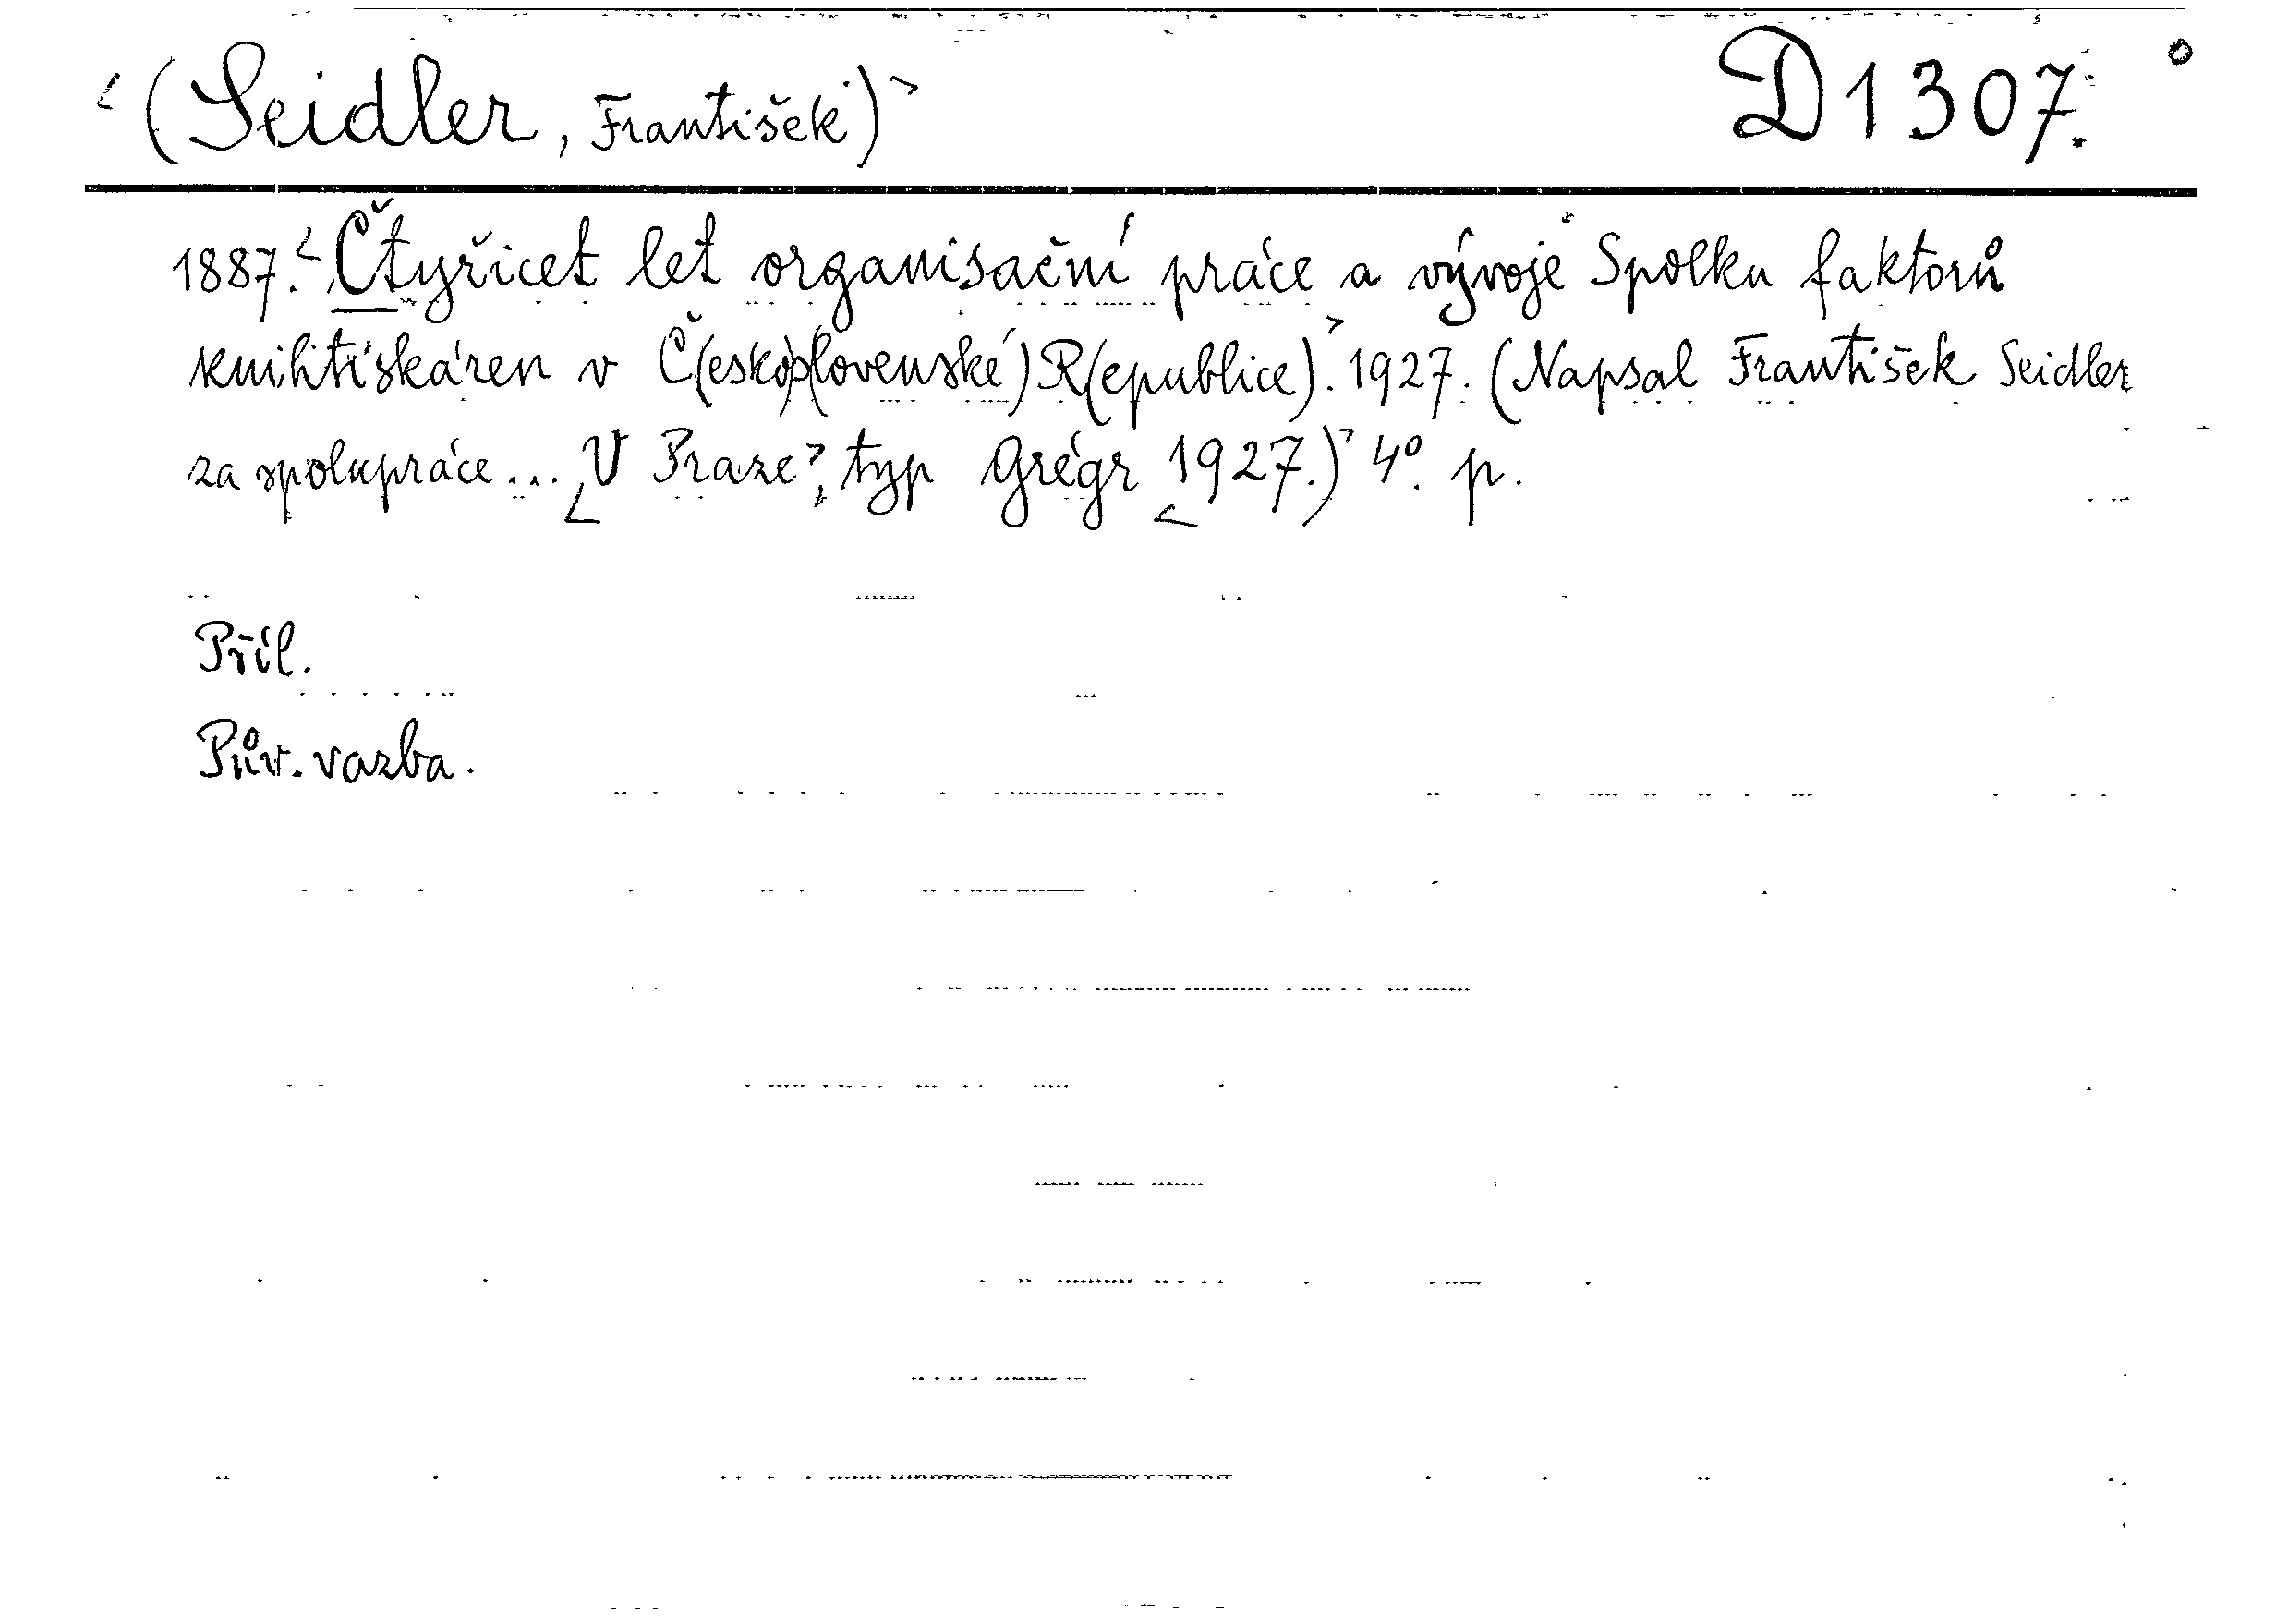 <(Seidler, František)> D 1307.
1887.<Čtyřicet let organisační práce a vývoje Spolku faktorů
knihtiskáren v Č(esko)s(lovenské) R(epublice).> 1927. (Napsal František Seidler
za spolupráce... <V Praze>, typ Grégr <1927.)> 4°. p.
Příl.
Pův. vazba.